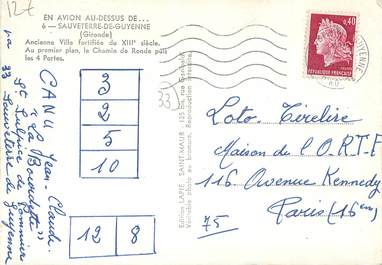 12€
EN AVION AU-DESSUS DE...
6 — SAUVETERRE-DE-GUYENNE
(Gironde)
Ancienne Ville fortifiée du XIIIe siècle.
Au premier plan, le Chemin de Ronde puis
les 4 Portes.
CANU Jean-Claude
"La Bourdette"
St Sulpice de Pommiers
par
33 Sauveterre de Guyenne
3
2
5
10
12 8
33
Edition LAPIE SAINT-MAUR
Véritable photo au bromure. Reproduction interdite.
0,40
REPUBLIQUE FRANCAISE
Loto-Tirelire
Maison de l'O.R.T.F
116 Avenue Kennedy
75 Paris (16em)